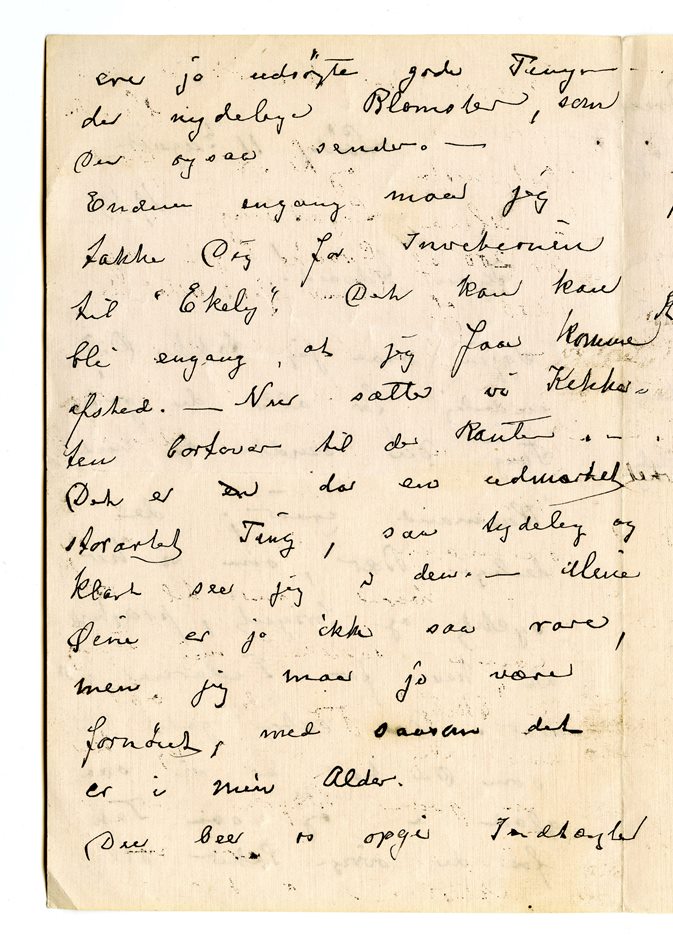 ere jo udsøgte gode Ting –
de nydelige Blomster, som
Du ogsaa sender. —
Endnu engang maa jeg
takke Dig for Invitationen
til "Ekely". Det kan kan
bli engang, at jeg faar komme
afsted. — Nu sætter vi Kikker-
ten bortover til de Kanter. . —
Det er da en udmærket
storartet Ting, saa tydelig og
klart seer jeg i den. — Mine
Øine er jo ikke saa rare,
men jeg maa jo være
fornøiet, med saasom det
er i min Alder.
Du beer os opgi Indtægter